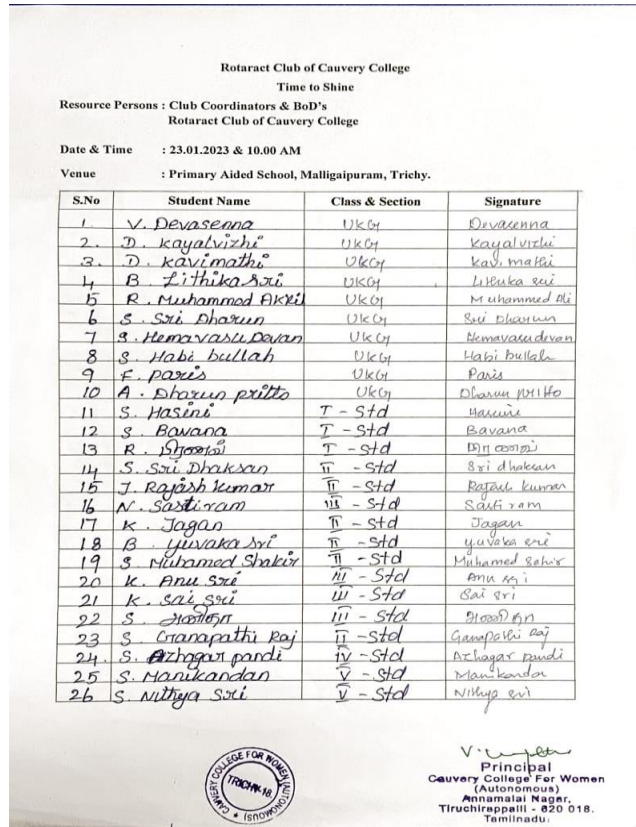 Rotaract Club of Cauvery College
Time to Shine
Resource Persons : Club Coordinators & BoD's
Rotaract Club of Cauvery College
Date & Time : 23.01.2023 & 10.00 AM
Venue : Primary Aided School, Malligaipuram, Trichy.
S.No Student Name Class & Section Signature
1. V. Devasenna UKG Devasenna
2. D. Kayalvizhi UKG Kayalvizhi
3. D. Kavimathi UKG Kavimathi
4 B. Lithika Sri UKG Lithika sri
5 R. Muhammed Akkil UKG Muhammed Ali
6 S. Sri Dharun UKG Sri Dharun
7 S. Hemavasu Devan UKG Hemavasudevan
8 S. Habi bullah UKG Habi bullah
9 F. Paris UKG Paris
10 A. Dharun pritto UKG Dharun pritto
11 S. Hasini I - Std Hasini
12 S. Bavana I - Std Bavana
13 R. I - Std
14 S. Sri Dhaksan II - Std Sri dhaksan
15 J. Rajash kumar II - Std Rajash kumar
16 N. Sastiram III - Std Sasti ram
17 K. Jagan II - Std Jagan
18 B yuvaka sri II - Std yuvaka sri
19 S Muhamed Shakir II - Std Muhamed Sahir
20 K. Anu Sri III - Std Anu sri
21 K. Sai Sri III - Std Sai Sri
22 S. III - Std
23 S. Ganapathi Raj II - Std Ganapathi Raj
24. S. Azhagar pandi IV - Std Azhagar pandi
25 S. Manikandan V - Std Manikandan
26 S. Nithya Sri V - Std Nithya sri
CAUVERY COLLEGE FOR WOMEN (AUTONOMOUS)
TRICHY-18.
Principal
Cauvery College For Women
(Autonomous)
Annamalai Nagar,
Tiruchirappalli - 620 018.
Tamilnadu.